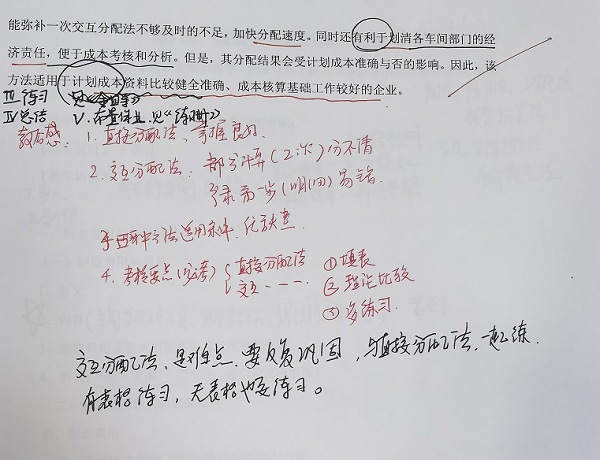 能弥补一次交互分配法不够及时的不足，加快分配速度。同时还有利于划清各车间部门的经
济责任，便于成本考核和分析。但是，其分配结果会受计划成本准确与否的影响。因此，该
方法适用于计划成本资料比较健全准确、成本核算基础工作较好的企业。
Ⅲ 练习 见《
Ⅳ 总结 Ⅴ. 布置作业 见《练习册》
教后感：1. 直接分配法，掌握良好.
2. 交互分配法： 部分计算（2次）分不清
分录 第一步（明细）易错
两种方法适用条件、优缺点
4. 考核要点（必考） 直接分配法 ①填表
交互 - - - ②理论比较
③多练习.
交互分配法，是难点，要反复巩固，与直接分配法一起练.
有表格练习，无表格也要练习。